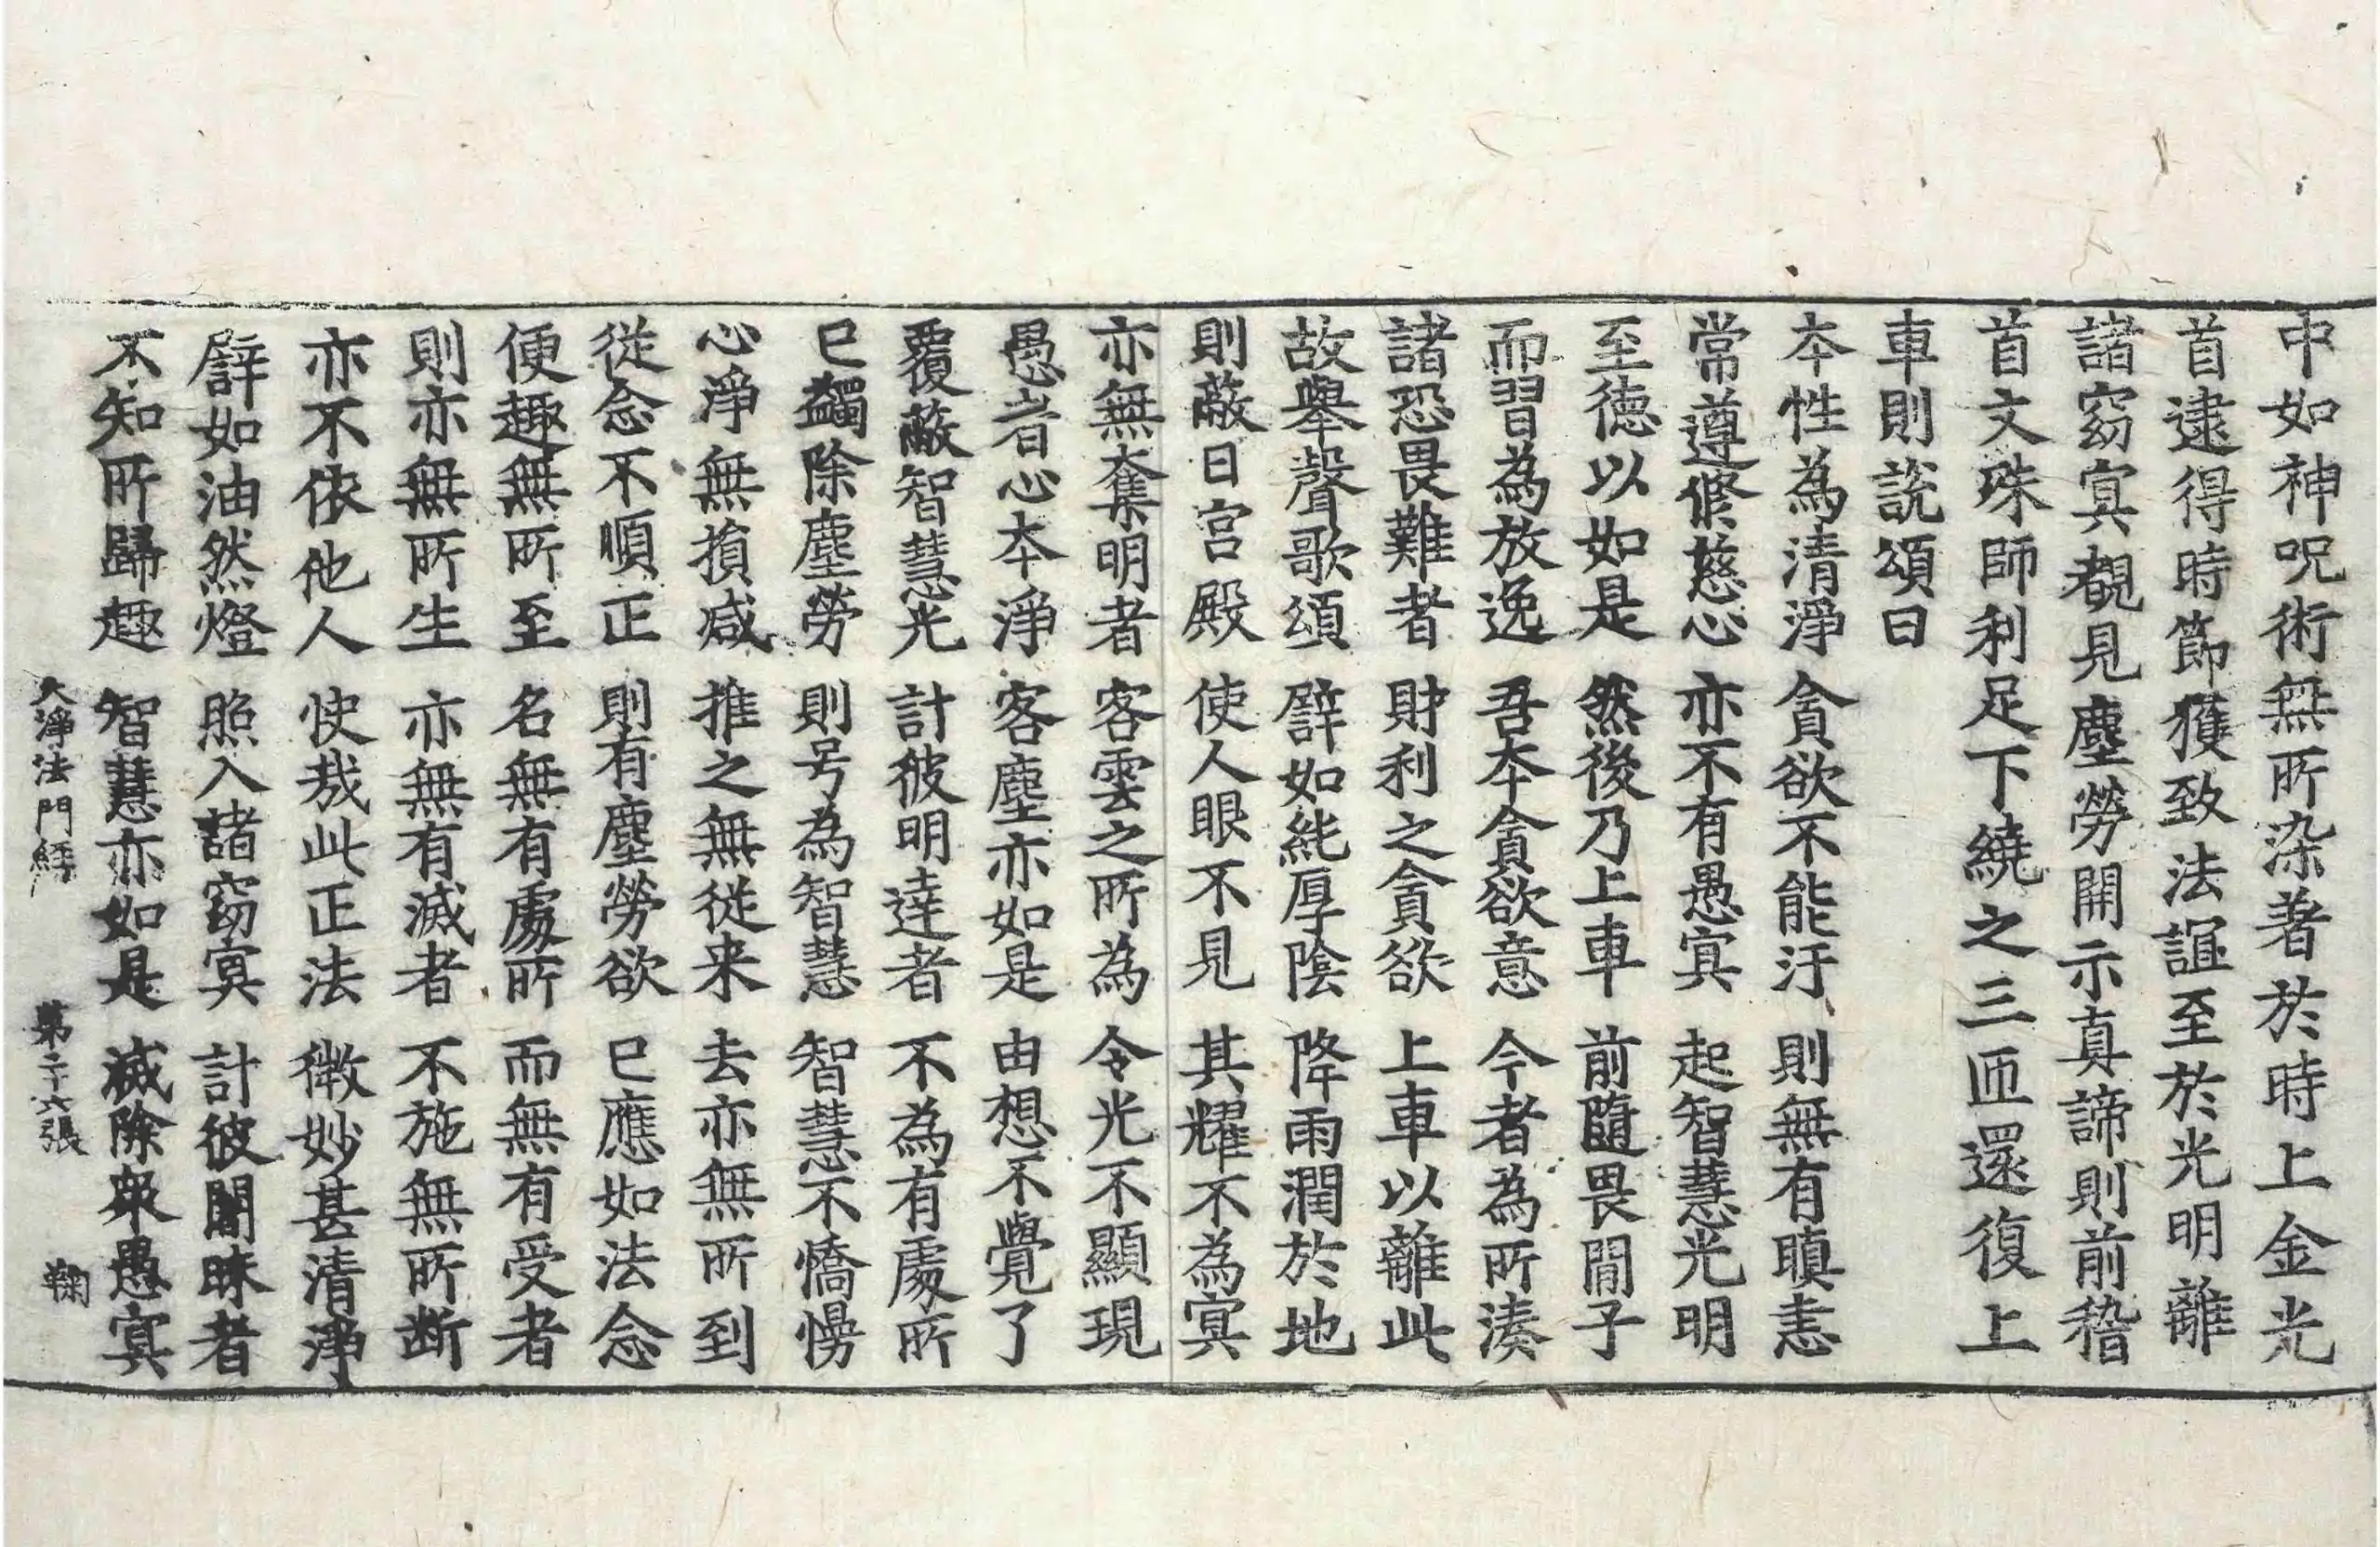 中如神呪術無所染著於時上金光
首逮得時節獲致法誼至於光明離
諸窈冥覩見塵勞開示真諦則前稽
首文殊師利足下繞之三匝還復上
車則説頌曰
本性為清淨 貪欲不能汙 則無有瞋恚
常遵修慈心 亦不有愚冥 起智慧光明
至德以如是 然後乃上車 前隨畏閒子
而習為放逸 吾本貪欲意 今者為所湊
諸恐畏難者 財利之貪欲 上車以離此
故舉聲歌頌 譬如純厚陰 降雨潤於地
則蔽日宮殿 使人眼不見 其耀不為冥
亦無奪明者 客雲之所為 令光不顯現
愚者心本淨 客塵亦如是 由想不覺了
覆蔽智慧光 計彼明達者 不為有處所
已蠲除塵勞 則号為智慧 智慧不憍慢
心淨無損減 推之無従来 去亦無所到
従念不順正 則有塵勞欲 已應如法念
便趣無所至 名無有處所 而無有受者
則亦無所生 亦無有滅者 不施無所断
亦不依他人 快哉此正法 微妙甚清淨
譬如油然燈 照入諸窈冥 計彼闇昧者
不知所歸趣 智慧亦如是 滅除衆愚冥
大淨法門經 第二十六張 鞠